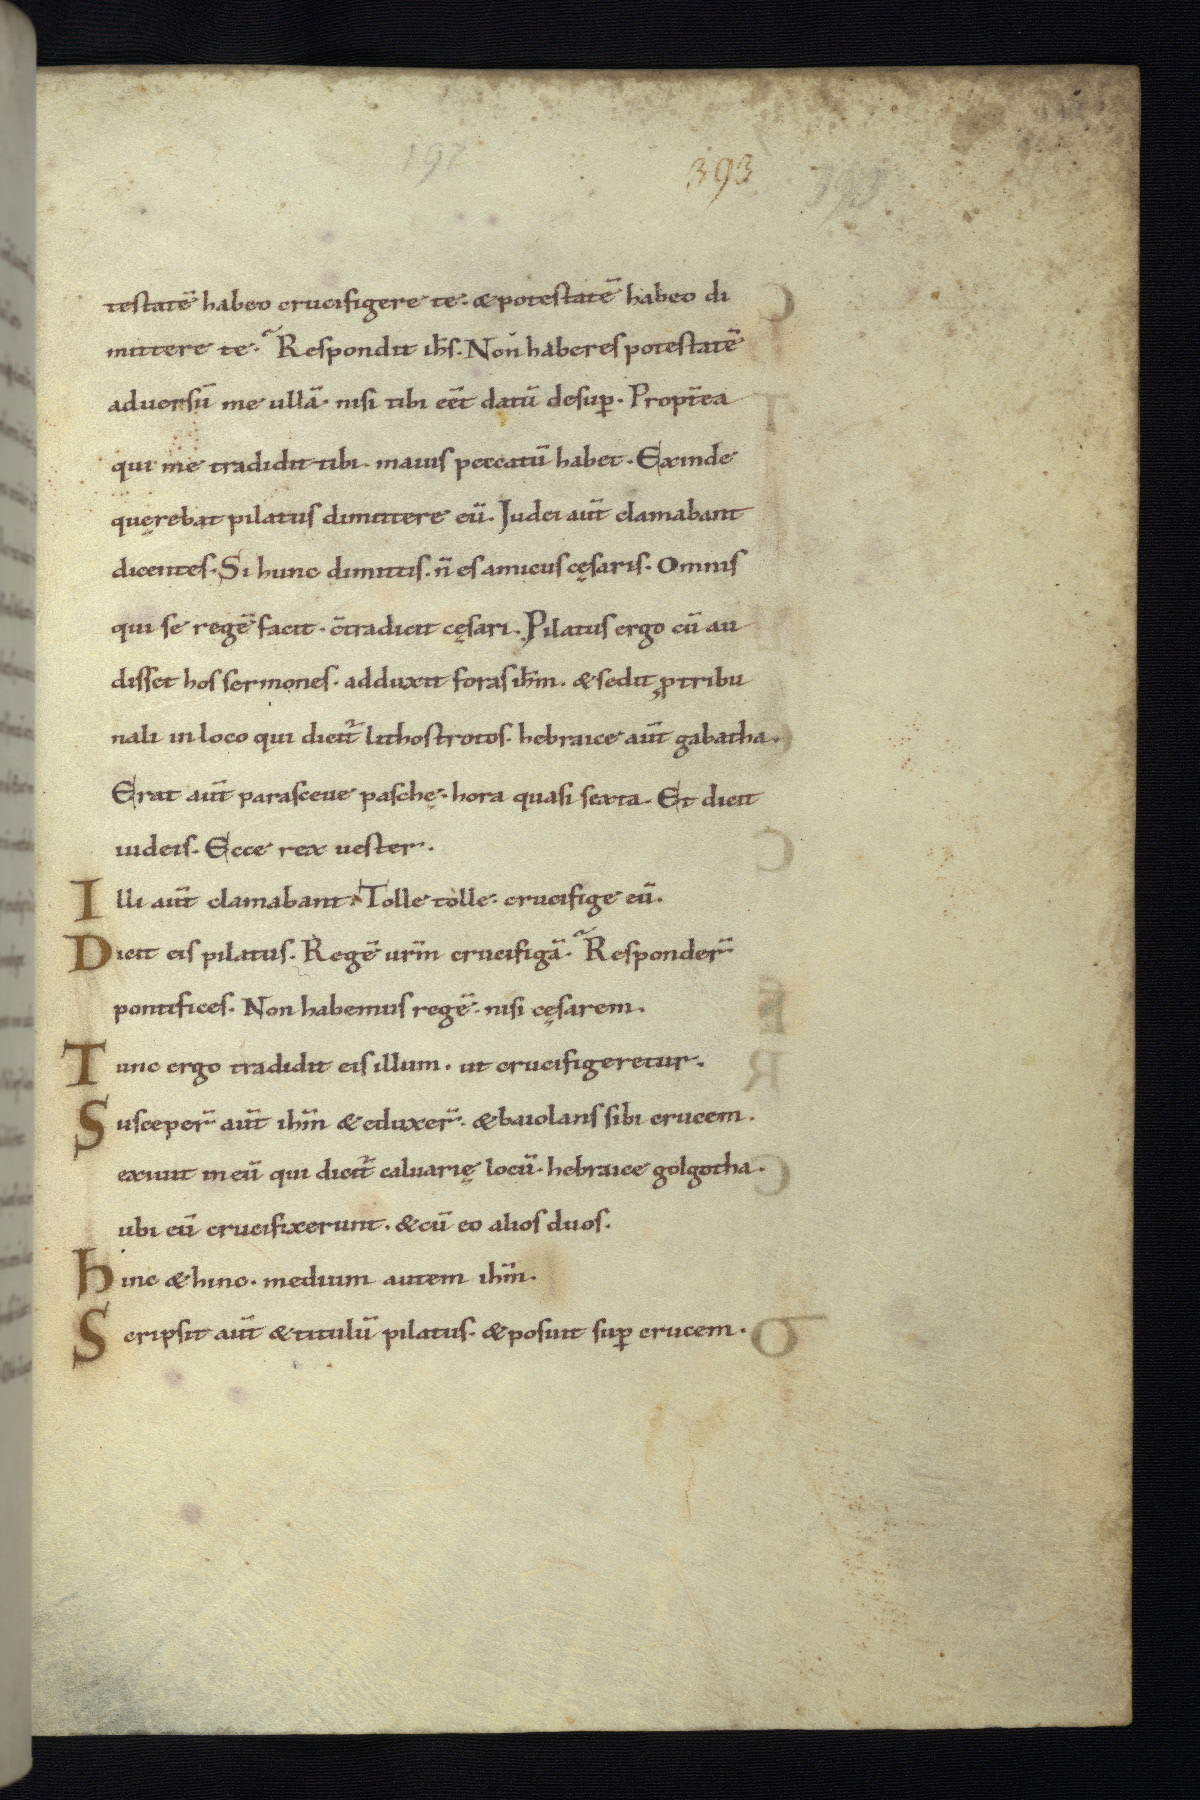 197 393 393
testatē habeo crucifigere te. & potestatē habeo di
mittere te. Respondit ih̄s. Non haberes potestatē
aduersū me ullā. nisi tibi eēt datū desup̄. Propt̄ea
qui me tradidit tibi. maius peccatū habet. Exinde
querebat pilatus dimittere eū. Iudei aūt clamabant
dicentes. Si hunc dimittis. n̄ es amicus cęsaris. Omnis
qui se regē facit. c̄tradicit cęsari. Pilatus ergo cū au
disset hos sermones. adduxit foras ih̄m. & sedit ꝓ tribu
nali in loco qui dicit᷑ lithostrotos. hebraice aūt gabatha.
Erat aūt parasceue paschę. hora quasi sexta. Et dicit
iudeis. Ecce rex uester.
Illi aūt clamabant. Tolle tolle. crucifige eū.
Dicit eis pilatus. Regē ur̄m crucifigā. Responder̄
pontifices. Non habemus regē. nisi cęsarem.
Tunc ergo tradidit eis illum. ut crucifigeretur.
Susceper̄ aūt ih̄m & eduxer̄. & baiolans sibi crucem.
exiuit in eū qui dicit᷑ caluarię locū. hebraice golgotha.
ubi eū crucifixerunt. & cū eo alios duos.
hinc & hinc. medium autem ih̄m.
Scripsit aūt & titulū pilatus. & posuit sup̄ crucem.